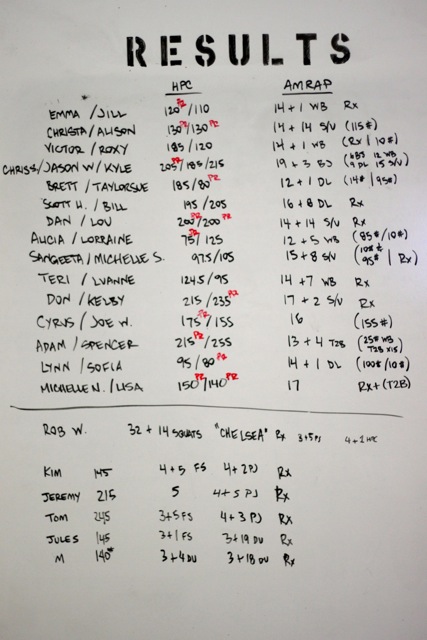 RESULTS
HPC AMRAP
EMMA / JILL 120 PR /110 14 + 1 WB Rx
CHRISTA / ALISON 130 PR /130 PR 14 + 14 S/U (115#)
VICTOR / ROXY 185 /120 14 + 1 WB (Rx | 10#)
CHRISS/JASON W/KYLE 205 PR /185/215 19 + 3 BJ
BRETT / TAYLORSUE 185/80 PR 12 + 1 DL (14# | 95#)
SCOTT H. / BILL 195 /205 16 + 8 DL Rx
DAN / LOU 200 PR /200 PR 14 + 14 S/U Rx
ALICIA / LORRAINE 75 PR / 125 12 + 5 WB (85#/10#)
SANGEETA/MICHELLE S. 97.5/105 15 + 8 S/U (10# 95# | Rx)
TERI / LVANNE 124.5/95 14 + 7 WB Rx
DON / KELBY 215 /235 PR 17 + 2 S/U Rx
CYRUS / JOE W. 175 PR /155 16 (155#)
ADAM / SPENCER 215 PR / 255 13 + 4 T2B (25# WB T2B x15)
LYNN / SOFIA 95 /80 PR 14 + 1 DL (100#/10#)
MICHELLE N. / LISA 150 PR /140 PR 17 Rx+(T2B)
ROB W. 32 + 14 SQUATS "CHELSEA" Rx 3+5 PJ 4+2 HPC
KIM 145 4+5 FS 4+2 PJ Rx
JEREMY 215 5 4+5 PJ Rx
TOM 245 3+5 FS 4+3 PJ Rx
JULES 145 3+1 FS 3+19 DU Rx
M 140* 3+4 DU 3+18 DU Rx